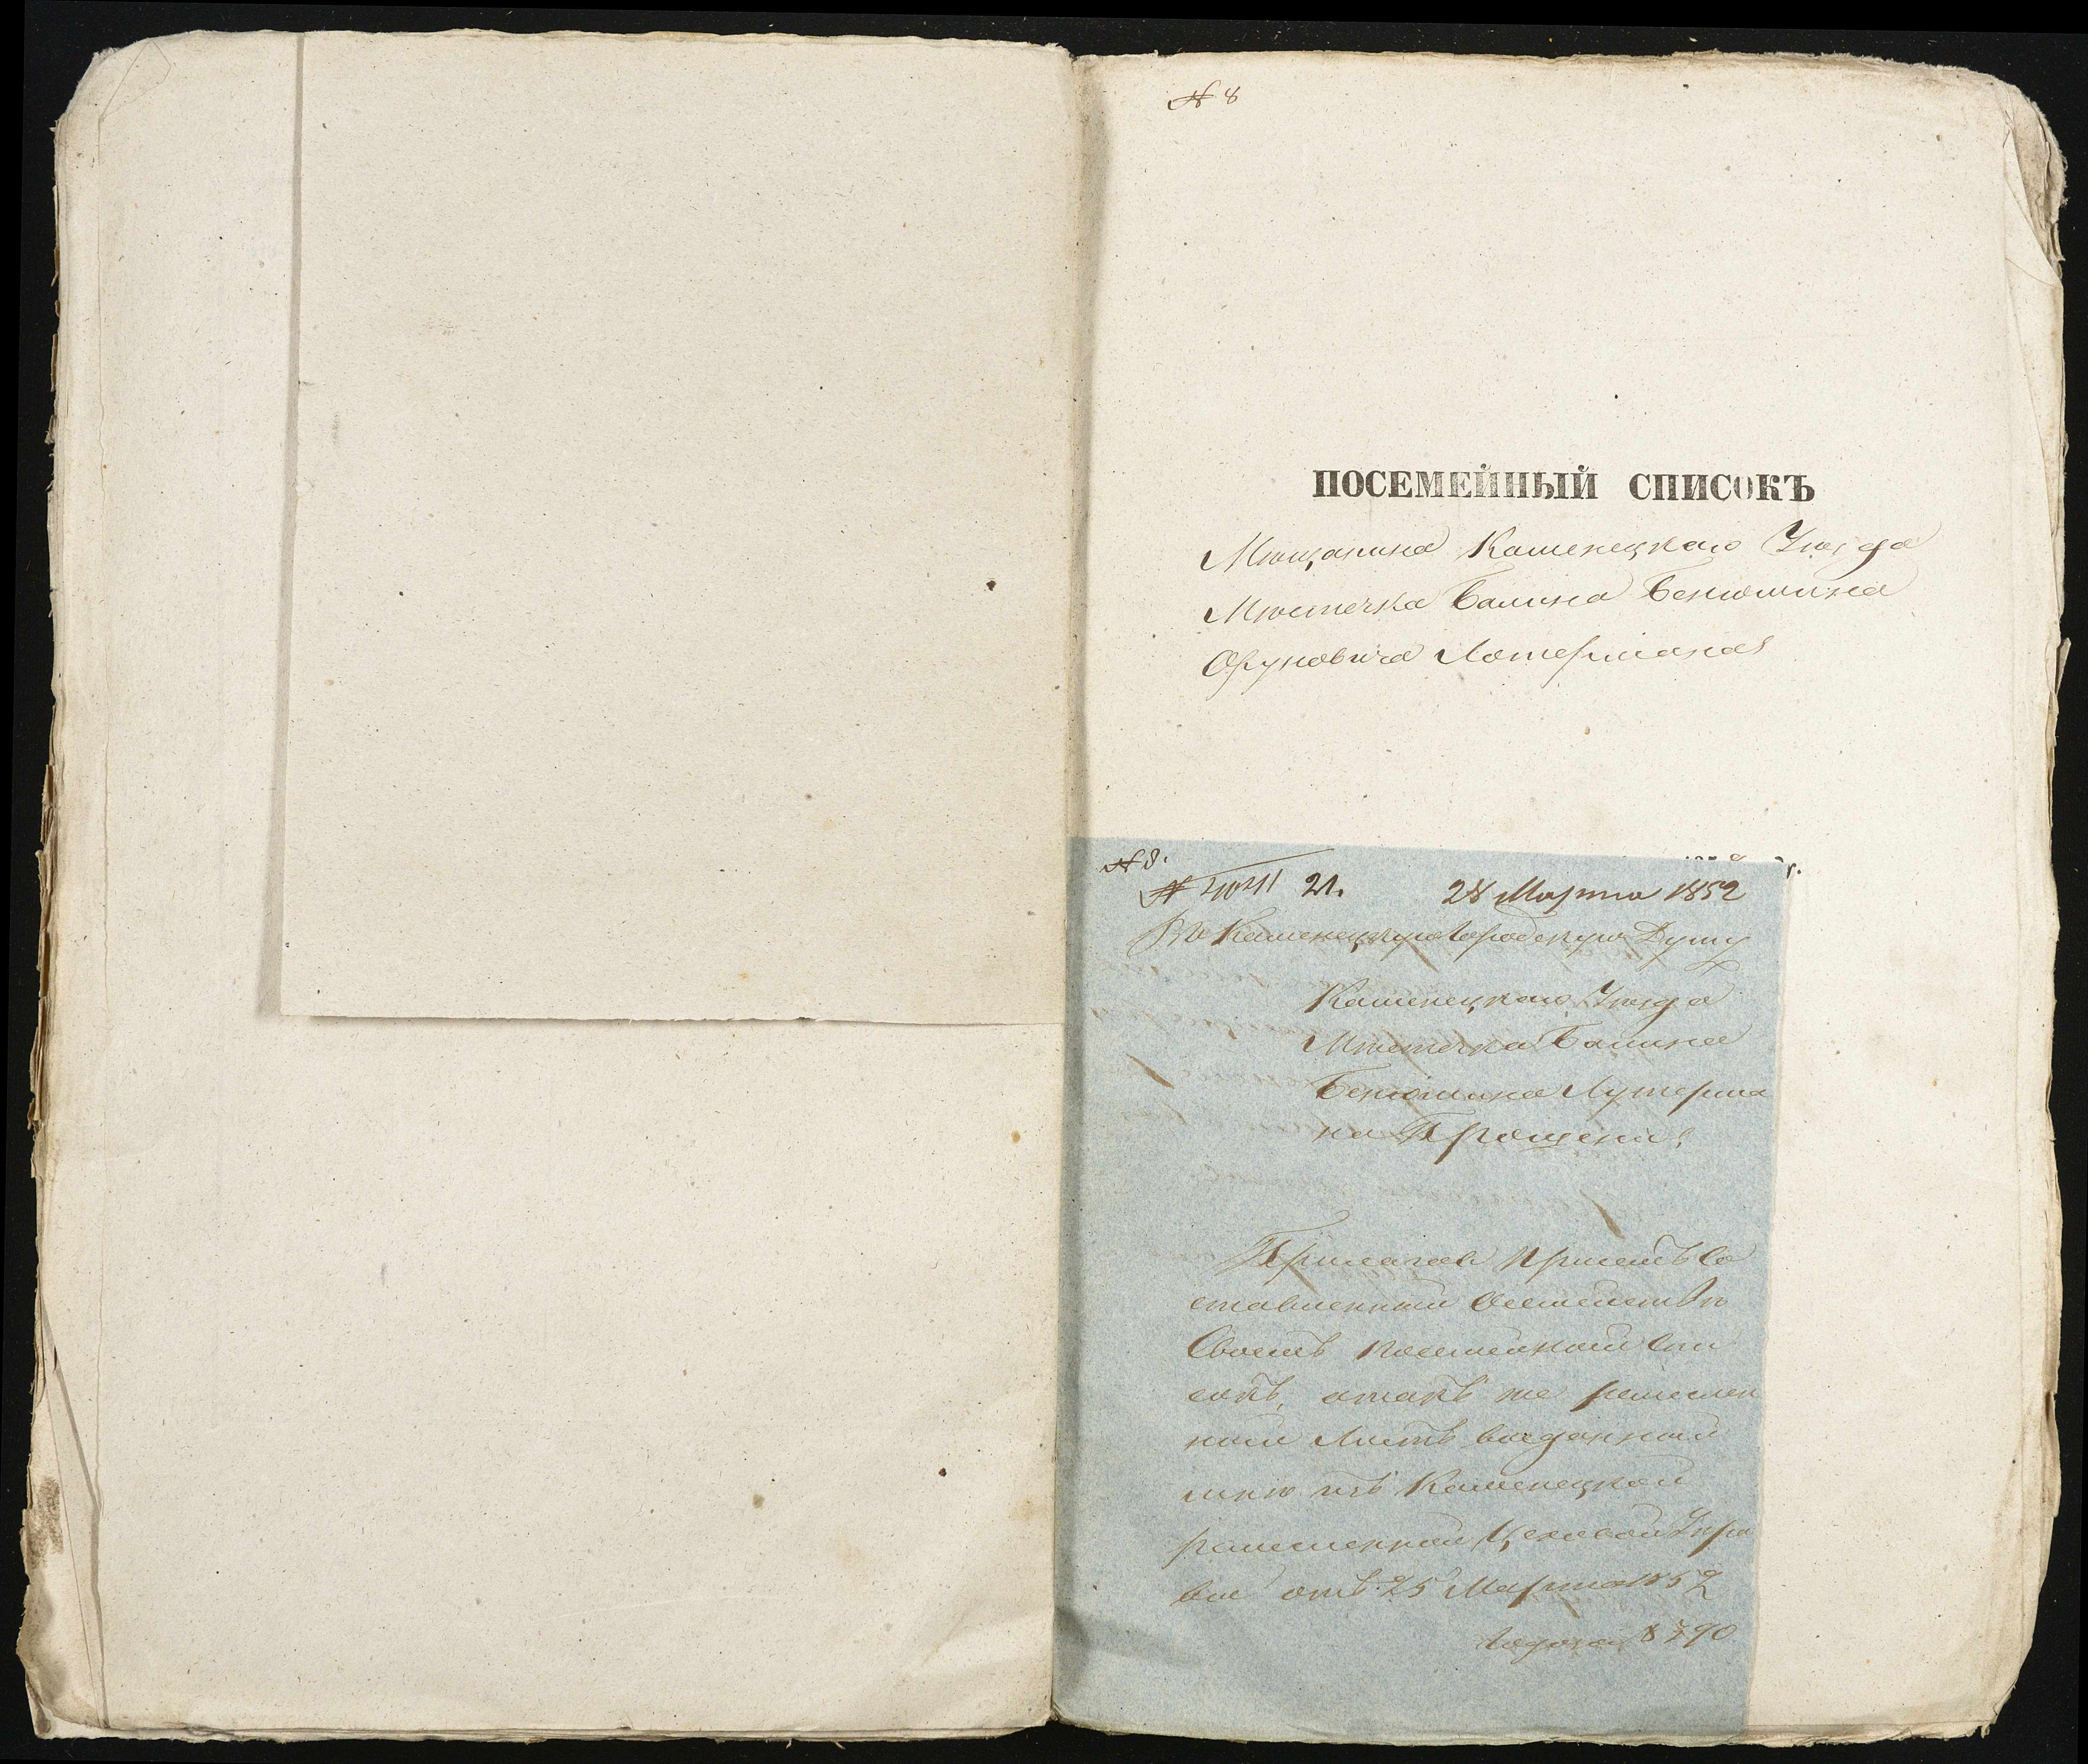 № 8
ПОСЕМЕЙНЫЙ СПИСОКЪ
Мѣщанина Каменецкаго Уѣзда
Мѣстечка Балина Бенюмина
Оруновича Лотермана
№ 8.
№ 21. 28 Марта 1852
Въ Каменецкую Городскую Думу
Каменецкаго Уѣзда
Мѣстечка Балина
Бенюмина Лутерма
на Прошеніе
Прилагая при семъ со
ставленный о семействѣ
своемъ посемейный спи
сокъ, а такъ же ремеслен
ный листъ выданный
мнѣ изъ Каменецкой
ремесленной Цеховой Упра
вы отъ 25 Марта 1852
года за 8790